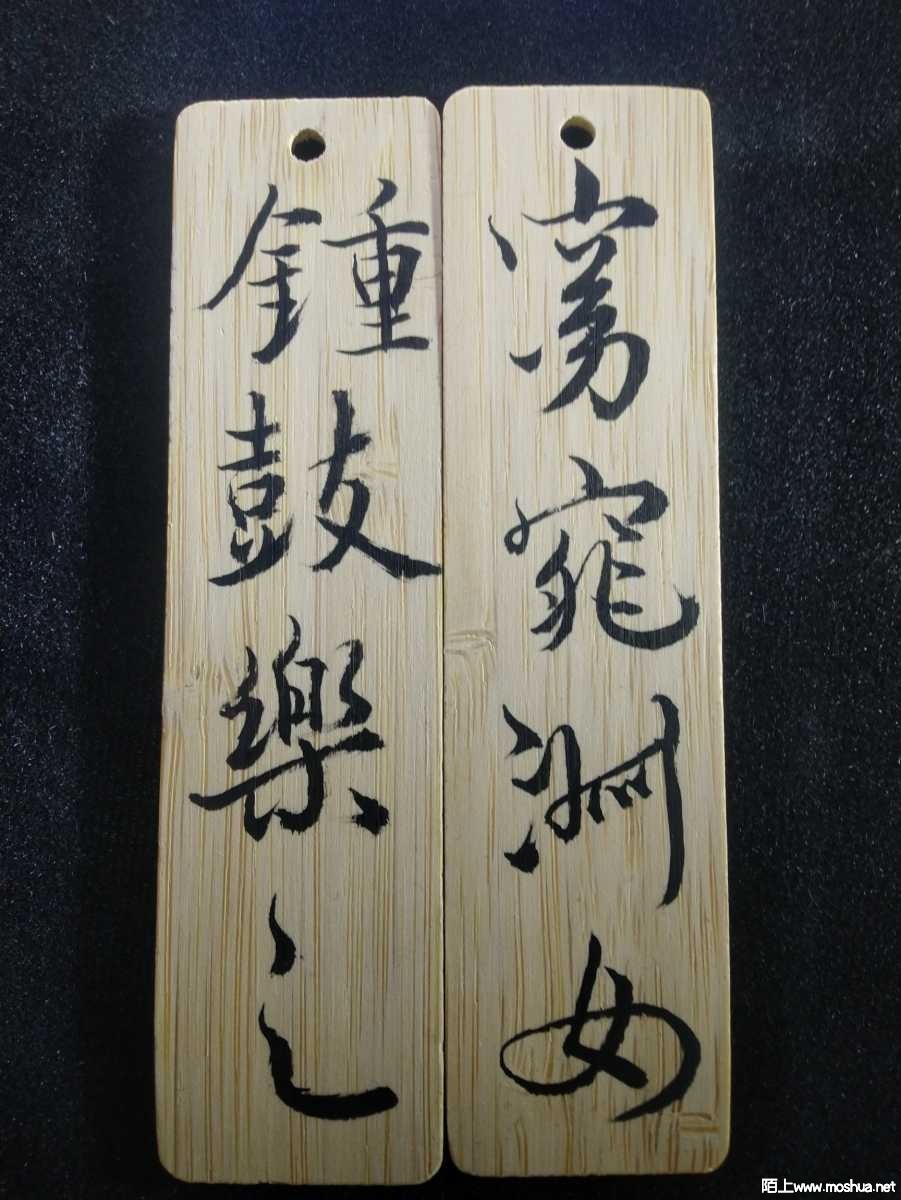 窈窕洲女
鍾鼓樂之
陌上www.moshua.net